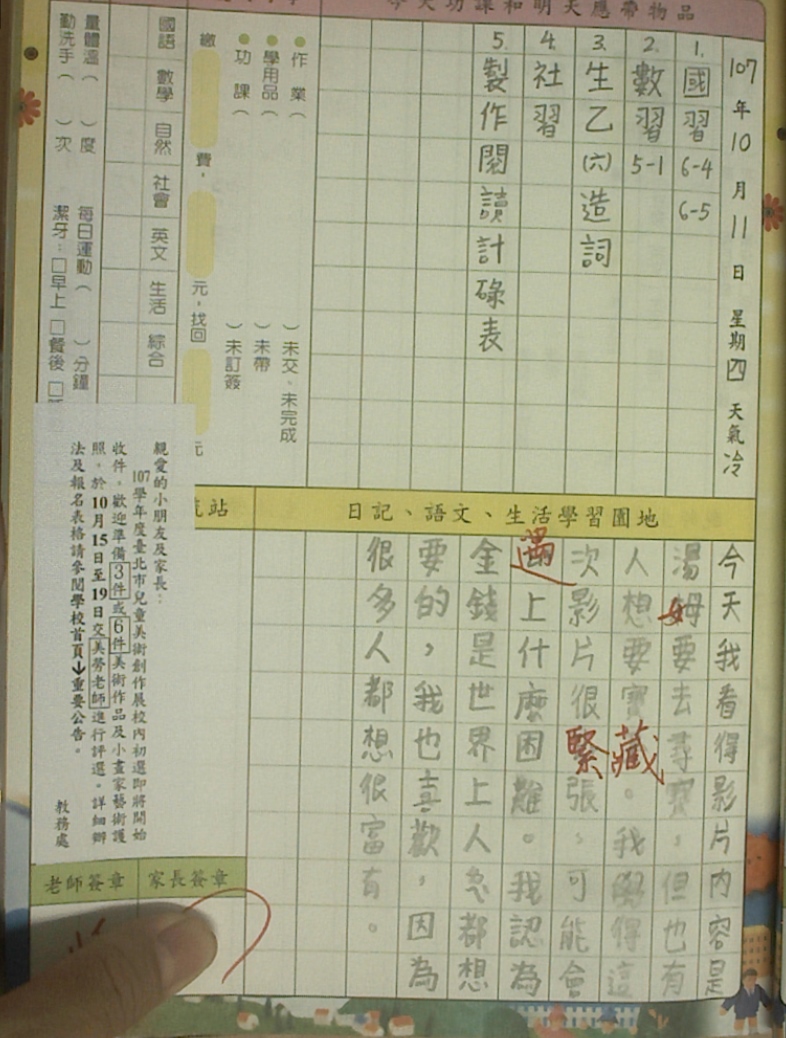 今天功課和明天應帶物品
107年10月11日 星期四 天氣冷
1.國習6-4 6-5
2.數習5-1
3.生乙(六)造詞
4.社習
5.製作閱讀計碌表
●作業( )未交、未完成
●學用品( )未帶
●功課( )未訂簽
繳 費, 元,找回 元
國語 數學 自然 社會 英文 生活 綜合
量體溫( )度 每日運動( )分鐘
勤洗手( )次 潔牙:□早上 □餐後 □
日記、語文、生活學習園地
今天我看得影片內容是
湯姆要去尋寶,但也有
人想要寶藏。我覺得這
次影片很緊張,可能會
遇上什麼困難。我認為
金錢是世界上人忽都想
要的,我也喜歡,因為
很多人都想很富有。
站
親愛的小朋友及家長:
107學年度臺北市兒童美術創作展校內初選即將開始
收件,歡迎準備3件或6件美術作品及小畫家藝術護
照,於10月15日至19日交美勞老師進行評選。詳細辦
法及報名表格請參閱學校首頁↓重要公告。
教務處
家長簽章
老師簽章